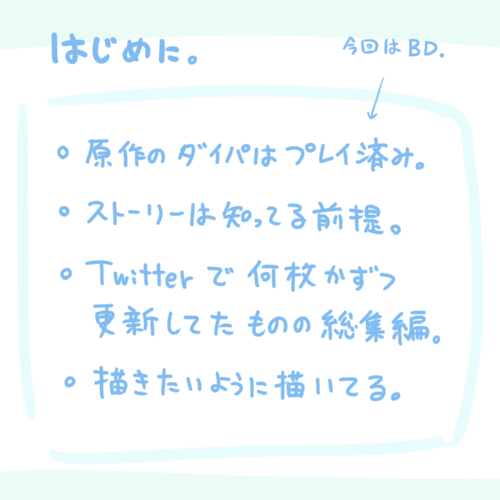 はじめに。
今回はBD.
○ 原作のダイパはプレイ済み。
○ ストーリーは知ってる前提。
○ Twitterで何枚かずつ
更新してたものの総集編。
○ 描きたいように描いてる。